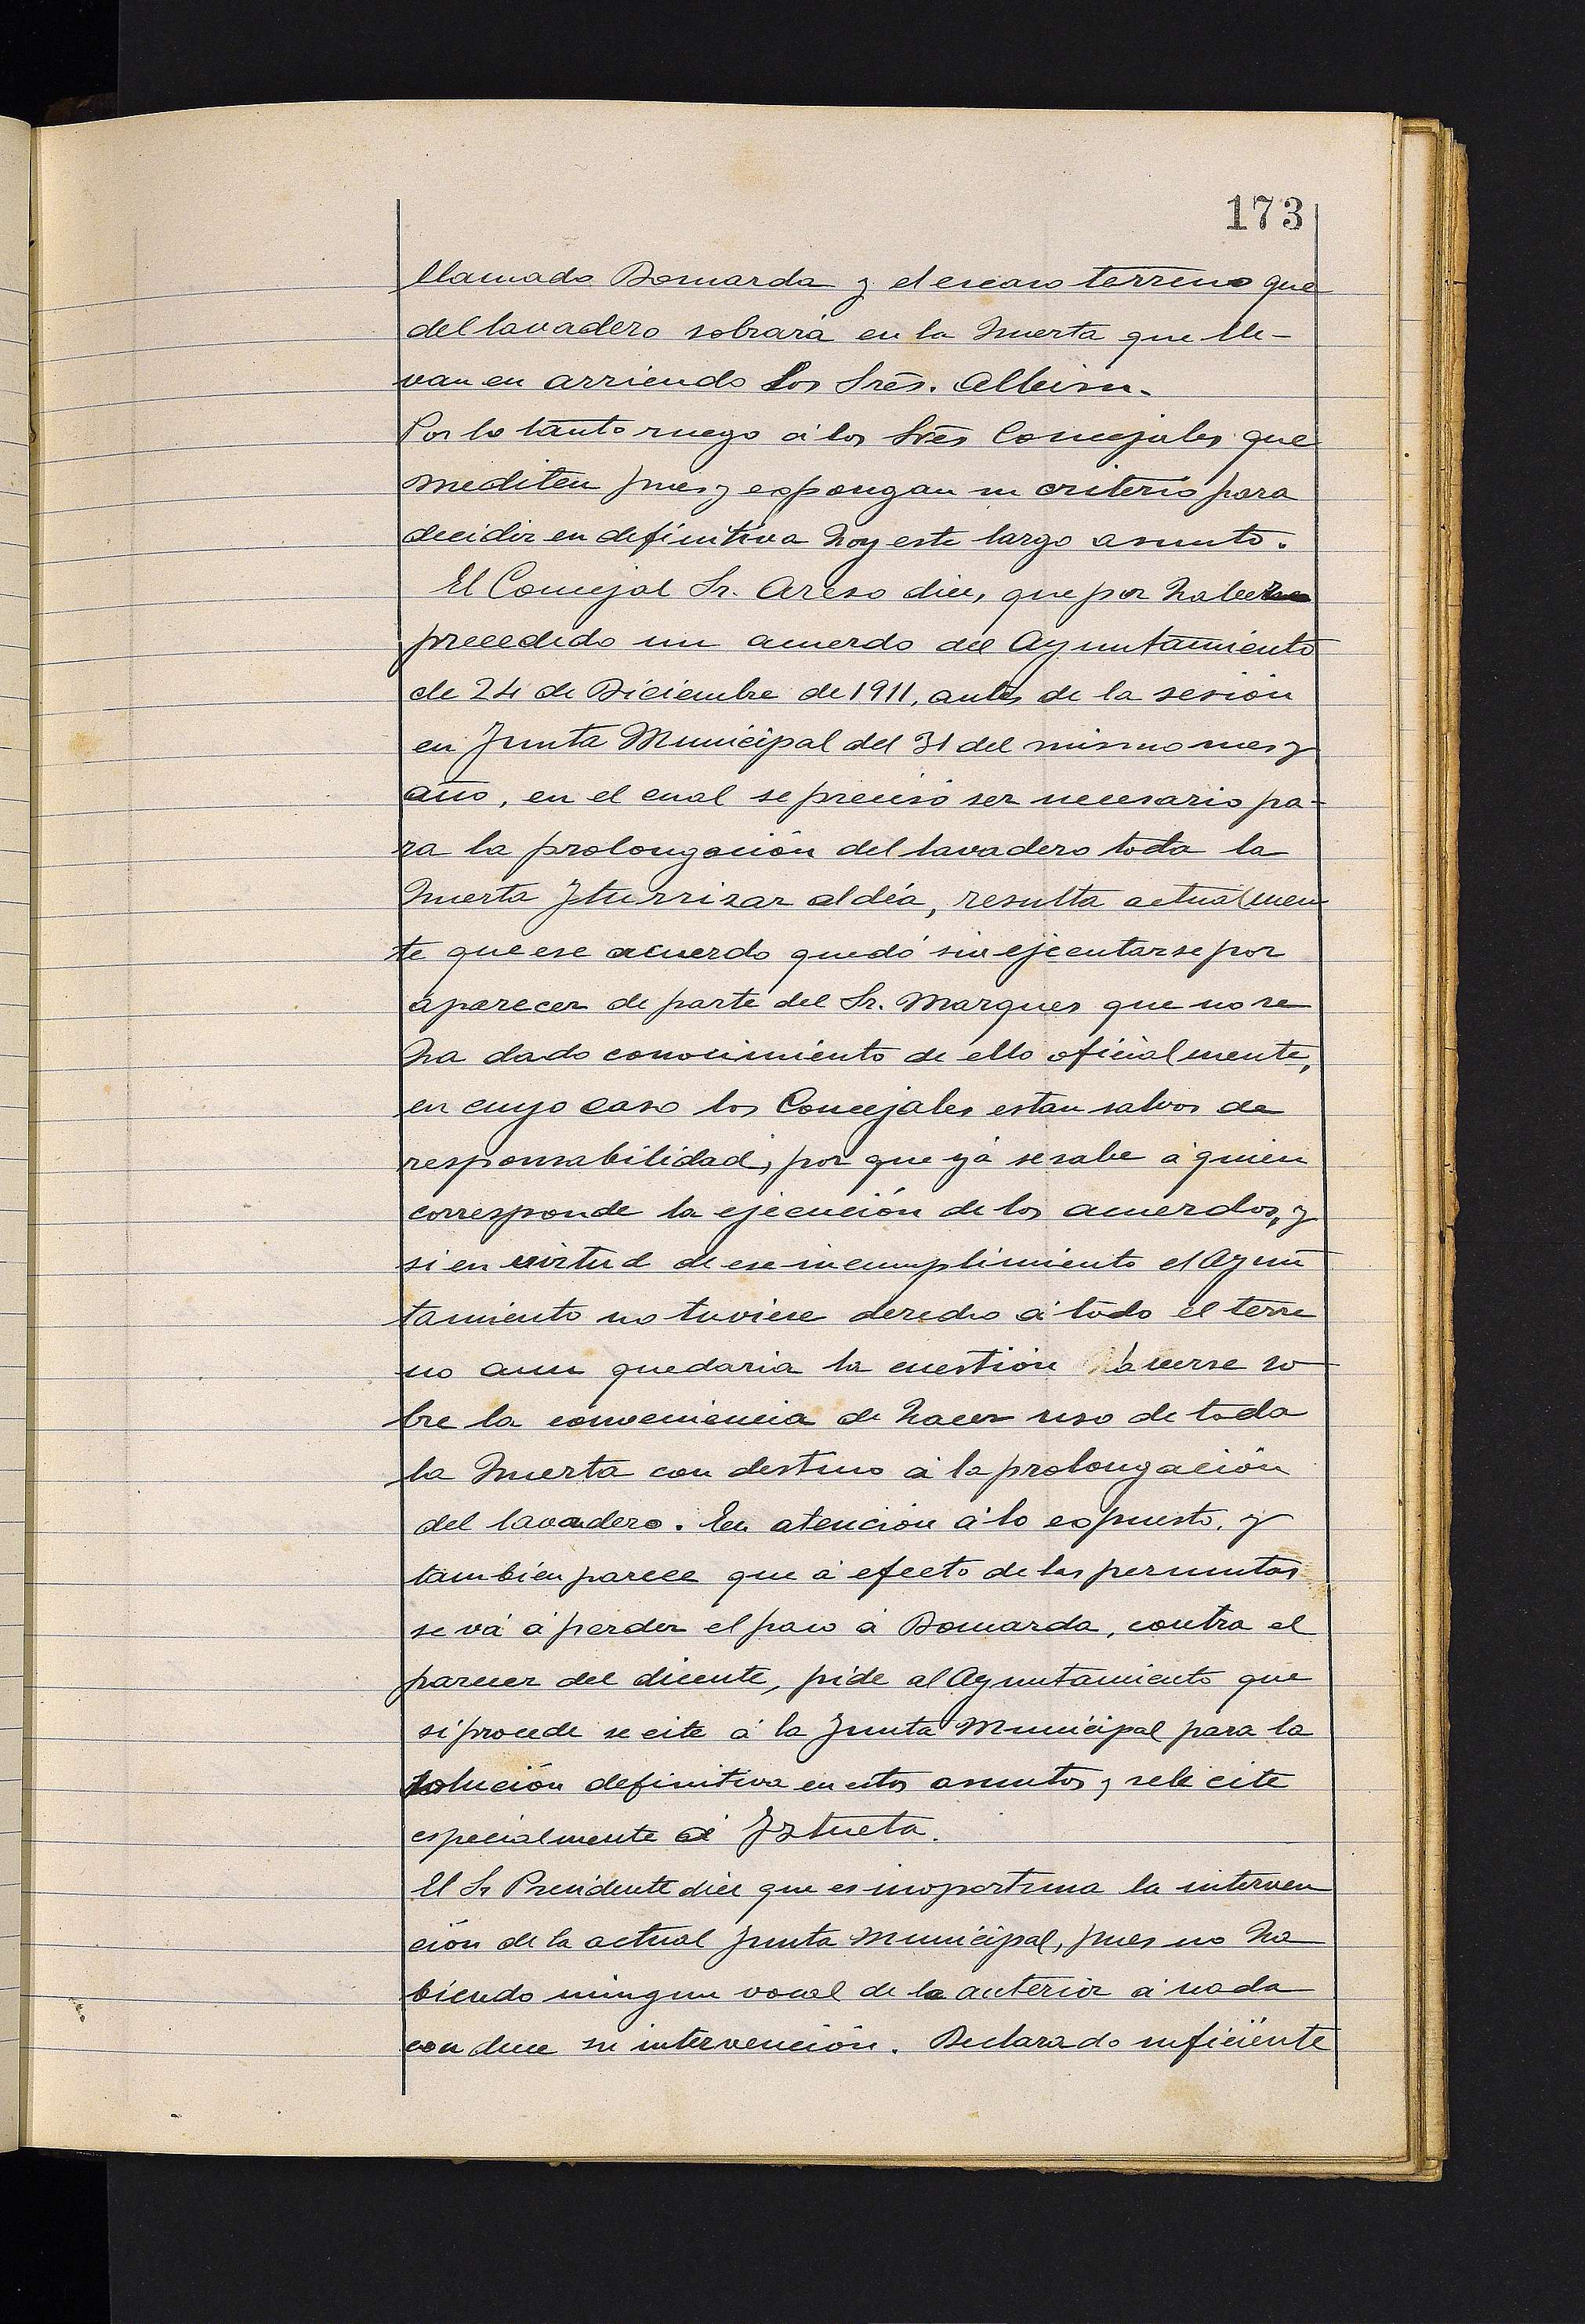 173
llamado Domarda y el escaso terreno que
del lavadero sobrará en la huerta que lle-
van en arriendo los Srēs. Albisu.
Por lo tanto ruego á los Srēs Concejales que
mediten pues y espongan su criterio para
decidir en definitiva hoy este largo asunto.
El Concejal Sr. Areso dice, que por haber
precedido un acuerdo del Ayuntamiento
de 24 de Diciembre de 1911, antes de la sesión
en Junta Municipal del 31 del mismo mes y
año, en el cual se precisó ser necesario pa-
ra la prolongación del lavadero toda la
huerta Iturrizar aldea, resulta actualmen
te que ese acuerdo quedó sin ejecutarse por
aparecer de parte del Sr. Marques que no se
ha dado conocimiento de ello oficialmente,
en cuyo caso los Concejales estan salvos de
responsabilidad, por que yá se sabe á quien
corresponde la ejecución de los acuerdos, y
si en virtud de ese incumplimiento el Ayun
tamiento no tuviese derecho á todo el terre
no aun quedaria la cuestión á verse so
bre la conveniencia de hacer uso de toda
la huerta con destino á la prolongación
del lavadero. En atención á lo espuesto, y
tambien parece que á efecto de las permutas
se vá á perder el paso á Domarda, contra el
parecer del dicente, pide al Ayuntamiento que
si procede se cite á la Junta Municipal para la
solución definitiva en estos asuntos y se le cite
especialmente á Iztueta.
El Sr Presidente dice que es inoportuna la interven
ción de la actual Junta Municipal, pues no ha
biendo ningun vocal de la anterior á nada
conduce su intervención. Declarado suficiente